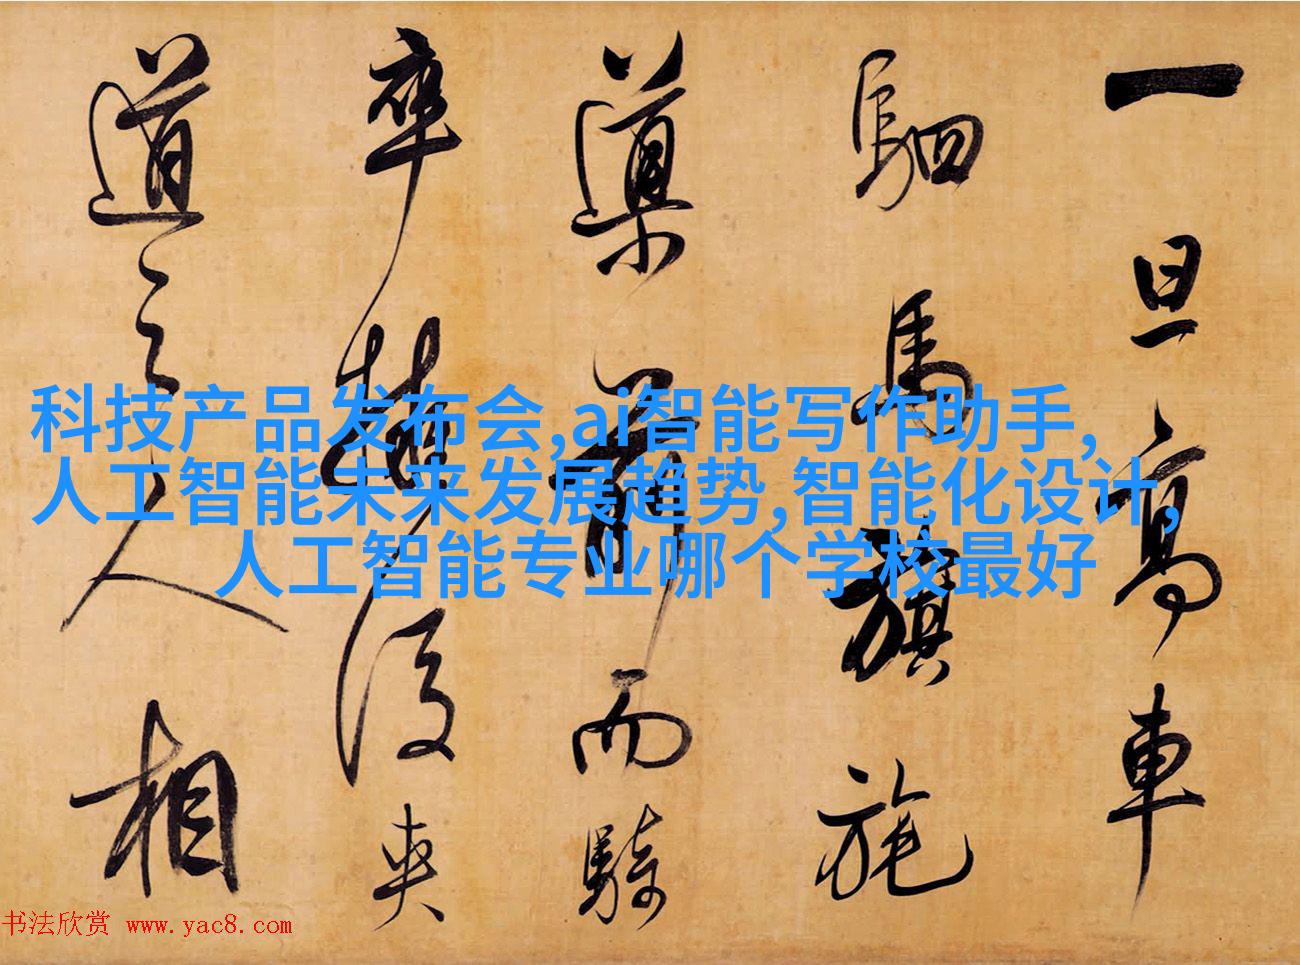 一旦高車
駟馬旗旄
導前而騎
卒擁後夾
道之人相
科技产品发布会,ai智能写作助手,
人工智能未来发展趋势,智能化设计,
人工智能专业哪个学校最好
书法欣赏 www.yac8.com